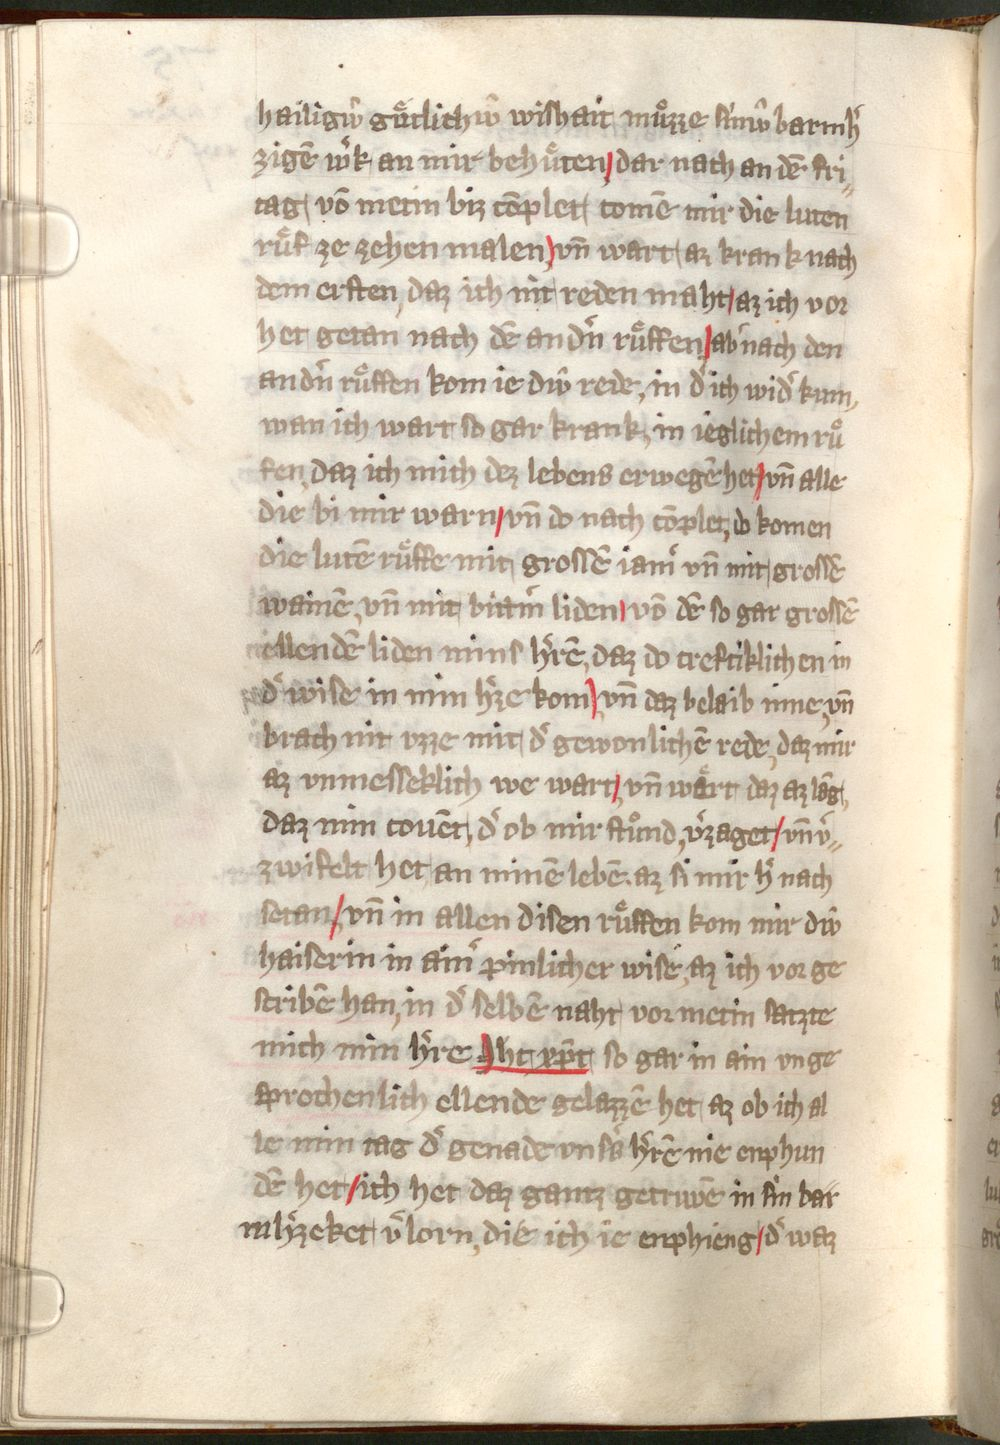 hailigv̂ gu̍tlichv̂ wishait mu̍zze sinv̂ barmh̾
zigē w̾k an mir behu̍ten / dar nach an dē fri-
tag vō metin biz cōplet comē mir die luten
ru̍f ze zehen malen / vn̄ wart az krank nach
dem ersten, daz ich nit reden maht / az ich vor
het getan nach dē andn̾ ru̍ffen / ab̾ nach den
andn̾ ru̍ffen kom ie div̂ rede, in d̾ ich wid̾ kum,
wan ich wart so gar krank, in ieglichem ru̍
fen, daz ich mich dez lebens erwegē het / vn̄ alle
die bi mir warn / vn̄ do nach cōplet, do komen
die lutē ru̍ffe mit grossē iam̾ vn̄ mit grossē
wainē, vn̄ mit bittm̾ liden / vō dē so gar grossē
ellendē liden mins h̾rē, daz do creftiklichen in
d̾ wise in min h̾ze kom / vn̄ daz belaib inne, vn̄
brach nit vzze mit d̾ gewonlichē rede, daz mir
az vnmesseklich we wart / vn̄ wārt daz az lāg,
daz min covēt, d̾ ob mir stu̍nd, v̾zaget / vn̄ v̾-
zwifelt het an minē lebē. az si mir h̾ nach
setan / vn̄ in allen disen ru̍ffen kom mir div̂
kaiserin in aim̾ pinlicher wise, az ich vor ge
scribē han, in d̾ selbē naht vor metin satzte
mich min h̾re Jhc xp̄c so gar in ain vnge
sprochenlich ellende gelazzē het az ob ich al
le min tag d̾ genade vns̾s h̾rē nie enphun
dē het / ich het daz gantz getruwē in sin bar
mh̾zeket v̾lorn, die ich ie enphieng / d̾ waz